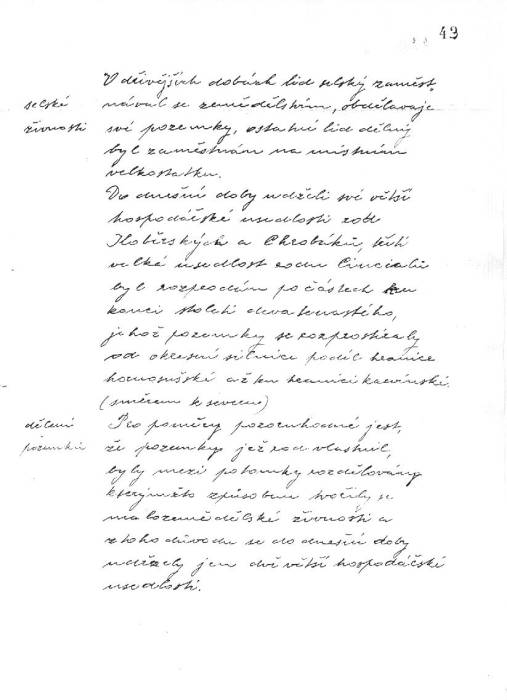 43
V dřívějších dobách lid selský zaměst-
selské nával se zemědělstvím, obdělávaje
živnosti své pozemky, ostatní lid dělný
byl zaměstnán na místním
velkostatku.
Do dnešní doby udrželi své větší
hospodářské usedlosti rod
a Chrobáků, též
velká usedlost rodu Cincialů
byl rozprodán po částech ku
konci století devatenáctého,
jehož pozemky se rozprostíraly
od okresní silnice podél hranice
hornosušské až ku hranici karvínské.
(směrem k severu)
dělení Pro poměry pozoruhodné jest,
pozemků že pozemky jež rod vlastnil,
byly mezi potomky rozdělovány
kterýmžto způsobem tvořily se
malozemědělské živnosti a
z toho důvodu se do dnešní doby
udržely jen dvě větší hospodářské
usedlosti.